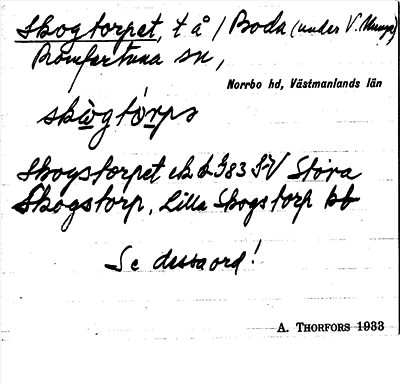 Skogtorpet, t å / Boda (under V. Munga)
Romfartuna sn,
Norrbo hd, Västmanlands län
skògtòrpə
Skogstorpet ek b G83 SV Stora
Skogstorp, Lilla Skogstorp kb
Se dessa ord!
A. THORFORS 1933